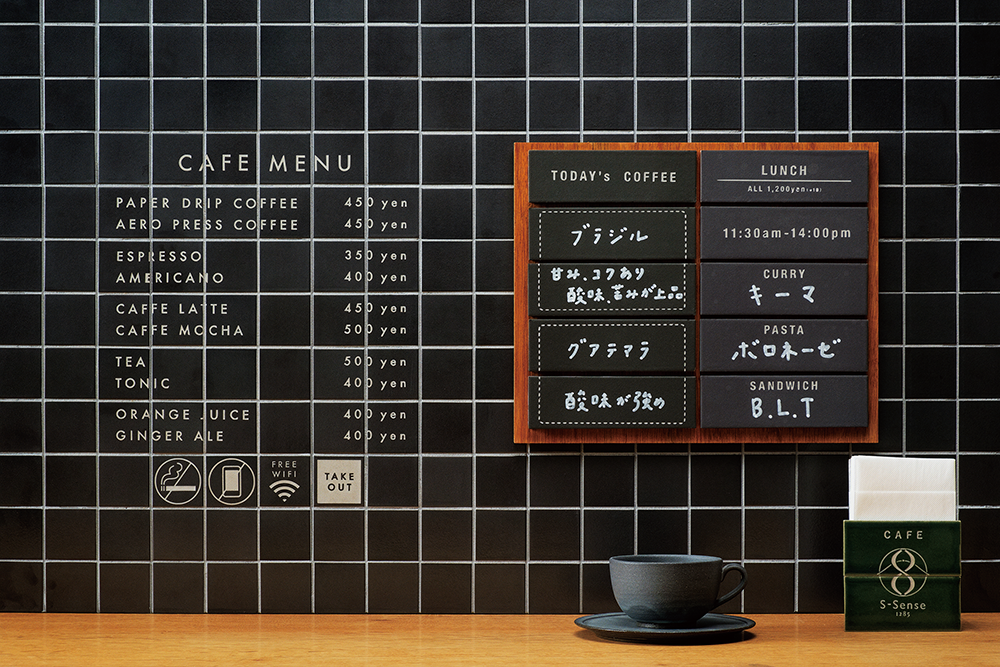 CAFE MENU
PAPER DRIP COFFEE 450 yen
AERO PRESS COFFEE 450 yen
ESPRESSO 350 yen
AMERICANO 400 yen
CAFFE LATTE 450 yen
CAFFE MOCHA 500 yen
TEA 500 yen
TONIC 400 yen
ORANGE JUICE 400 yen
GINGER ALE 400 yen
FREE
WIFI
TAKE
OUT
TODAY's COFFEE
ブラジル
甘み、コクあり
酸味、苦みが上品
グアテマラ
酸味が強め
LUNCH
ALL 1,200yen
11:30am-14:00pm
CURRY
キーマ
PASTA
ボロネーゼ
SANDWICH
B.L.T
CAFE
S-Sense
1285